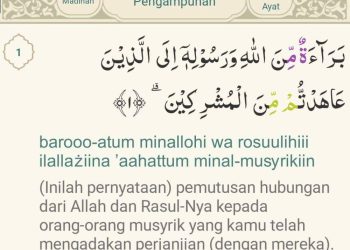 Madinah
Pengampunan
Ayat
1
بَرَاۤءَةٌ مِّنَ اللّٰهِ وَرَسُوْلِهٖٓ اِلَى الَّذِيْنَ
عَاهَدْتُّمْ مِّنَ الْمُشْرِكِيْنَۗ ﴿١﴾
barooo-atum minallohi wa rosuulihiii
ilallażiina 'aahattum minal-musyrikiin
(Inilah pernyataan) pemutusan hubungan
dari Allah dan Rasul-Nya kepada
orang-orang musyrik yang kamu telah
mengadakan perjanjian (dengan mereka).